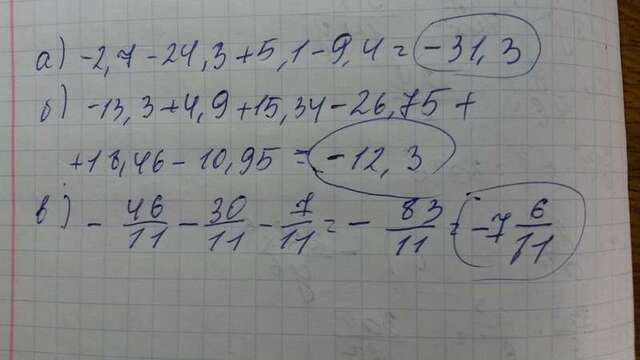 а) -2,7-24,3+5,1-9,4=-31,3
б) -13,3+4,9+15,34-26,75+
+18,46-10,95=-12,3
в) - 46/11 - 30/11 - 7/11 = - 83/11 = -7 6/11